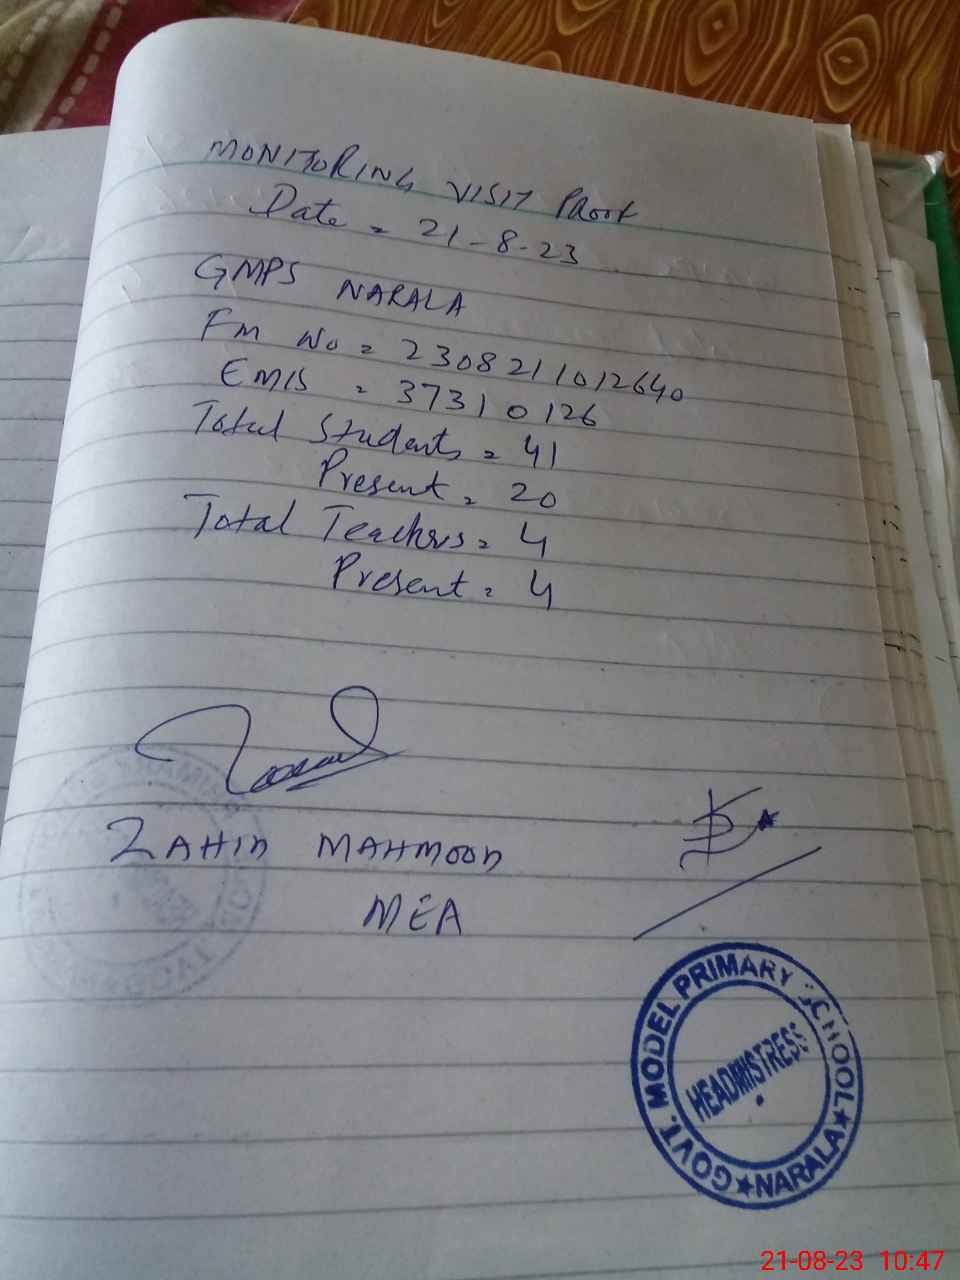 MONITORING VISIT PROOF
Date = 21-8-23
GMPS NARALA
FM No = 2308211012640
EMIS = 37310126
Total Students = 41
Present = 20
Total Teachers = 4
Present = 4
ZAHID MAHMOOD
MEA
GOVT. MODEL PRIMARY SCHOOL ★ NARALA ★
HEADMISTRESS
21-08-23 10:47